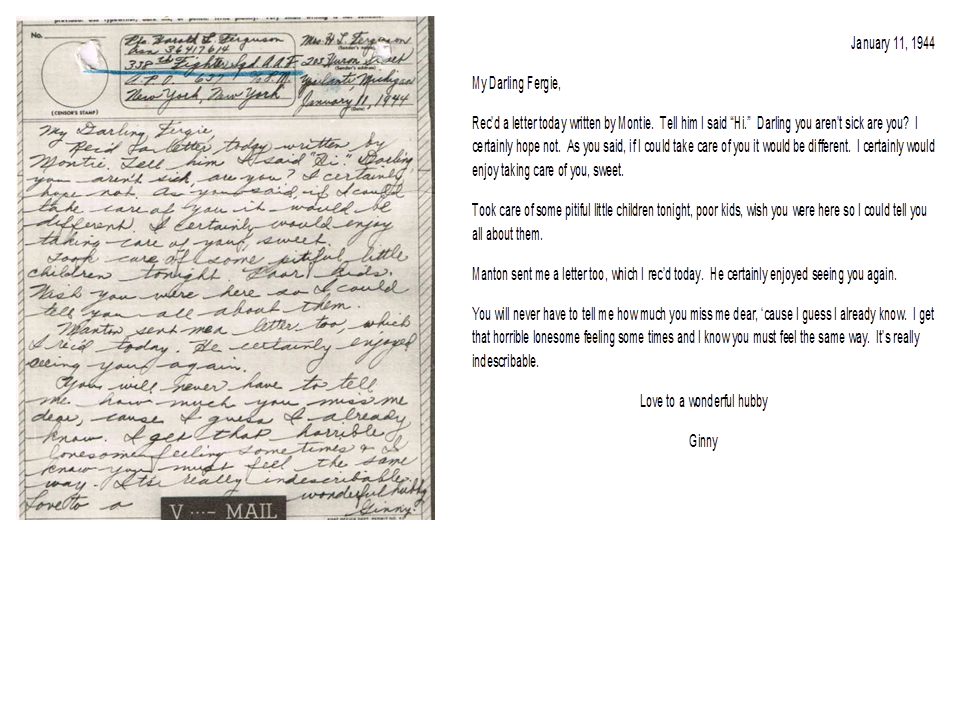 No.
(CENSOR'S STAMP)
Pfc. Harold L. Ferguson
Asn 36417614
338th Fighter Sqd. A A F
A. P. O. 637 % P.M.
New York, New York
Mrs. H L Ferguson
(Sender's name)
203 Huron Street
(Sender's address)
Ypsilanti, Michigan
January 11, 1944
(Date)
My Darling Fergie,
Rec'd a letter today written by
Montie. Tell him I said "Hi." Darling
you aren't sick, are you? I certainly
hope not. As you said, if I could
take care of you it would be
different. I certainly would enjoy
taking care of you, sweet.
Took care of some pitiful little
children tonight. Poor kids.
Wish you were here so I could
tell you all about them.
Manton sent me a letter too, which
I rec'd today. He certainly enjoyed
seeing you again.
You will never have to tell
me how much you miss me
dear, cause I guess I already
know. I get that horrible
lonesome feeling sometimes & I
know you must feel the same
way. Its really indescribable.
Love to a wonderful hubby
Ginny.
V ···— MAIL
January 11, 1944
My Darling Fergie,
Rec'd a letter today written by Montie. Tell him I said "Hi." Darling you aren't sick are you? I
certainly hope not. As you said, if I could take care of you it would be different. I certainly would
enjoy taking care of you, sweet.
Took care of some pitiful little children tonight, poor kids, wish you were here so I could tell you
all about them.
Manton sent me a letter too, which I rec'd today. He certainly enjoyed seeing you again.
You will never have to tell me how much you miss me dear, 'cause I guess I already know. I get
that horrible lonesome feeling some times and I know you must feel the same way. It's really
indescribable.
Love to a wonderful hubby
Ginny